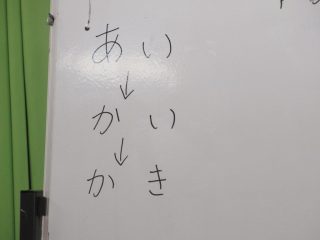 あい
↓
かい
↓
かき